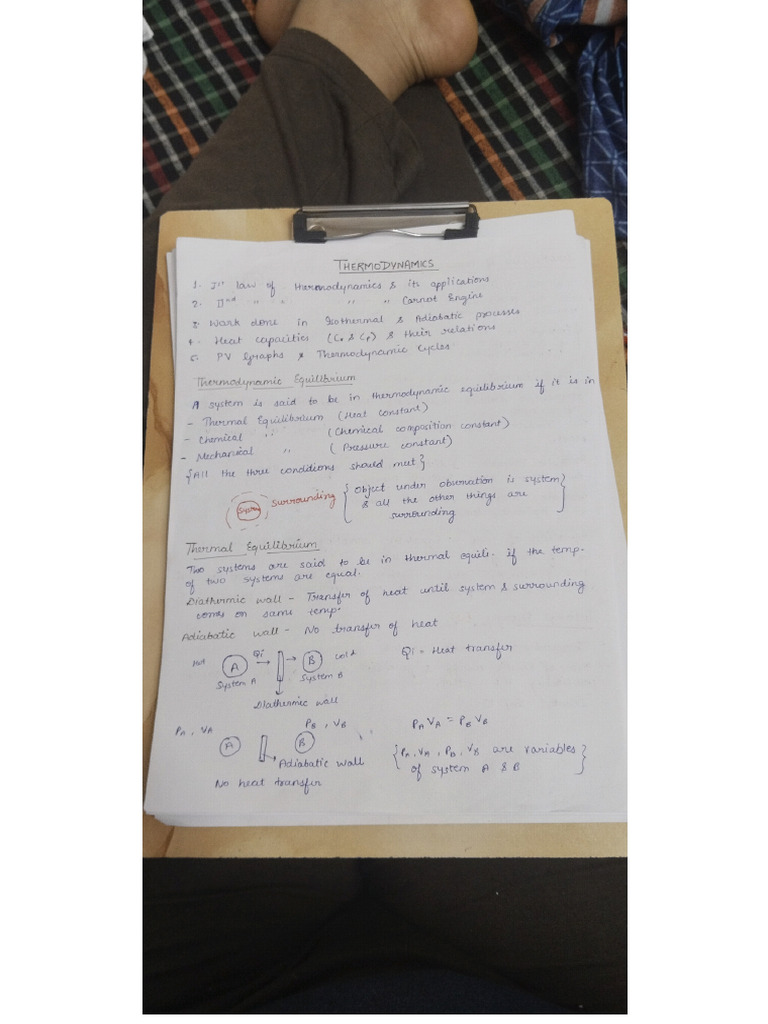 THERMODYNAMICS
1. Ist law of thermodynamics & its applications
2. IInd " " " " " Carnot Engine
3. Work done in Isothermal & Adiabatic processes
4. Heat capacities (Cv & Cp) & their relations
5. PV Graphs & Thermodynamic Cycles
Thermodynamic Equilibrium
A system is said to be in thermodynamic equilibrium if it is in
- Thermal Equilibrium (Heat constant)
- Chemical " (Chemical composition constant)
- Mechanical " (Pressure constant)
{All the three conditions should meet}
System Surrounding {Object under observation is system
& all the other things are
surrounding}
Thermal Equilibrium
Two systems are said to be in thermal equili. if the temp.
of two systems are equal.
Diathermic wall - Transfer of heat until system & surrounding
comes on same temp.
Adiabatic wall - No transfer of heat
Hot A Qi B cold Qi = Heat transfer
System A System B
Diathermic wall
PA, VA PB, VB PA VA = PB VB
A B
Adiabatic wall {PA, VA, PB, VB are variables
of system A & B}
No heat transfer